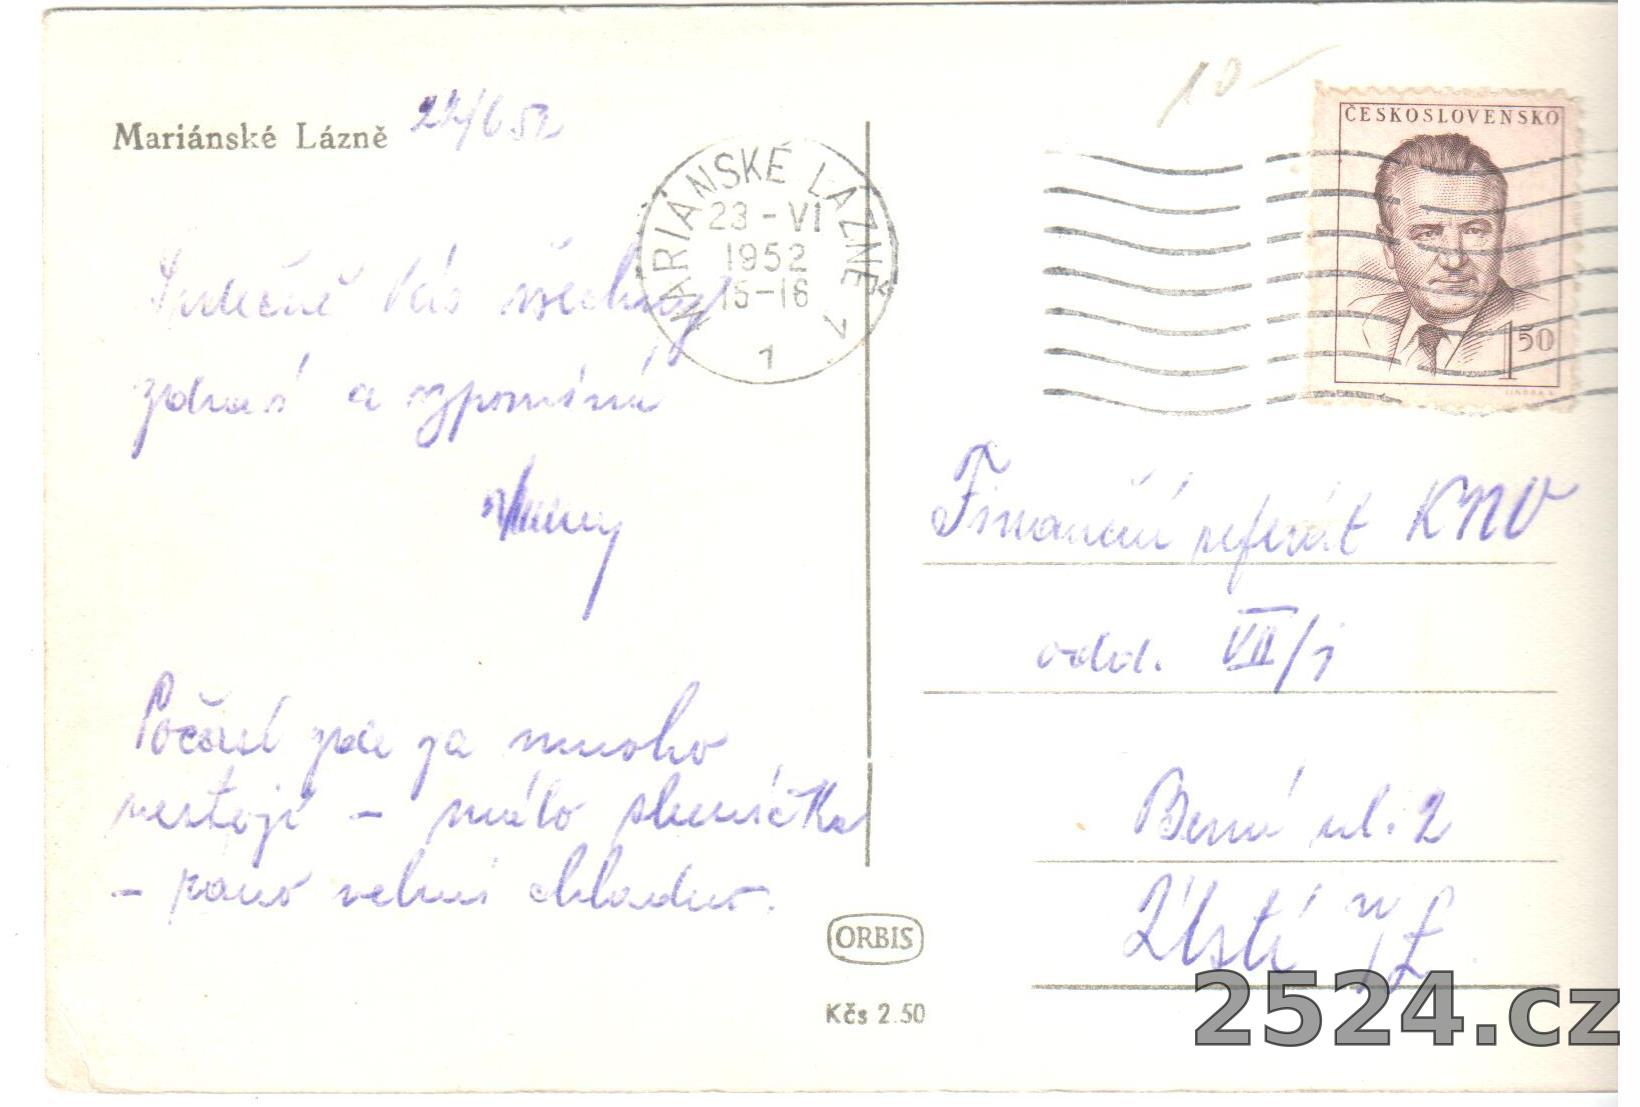 Mariánské Lázně 22/6 52
Srdečně Vás všechny
zdraví a vzpomíná
Počasí zde za mnoho
nestojí - málo sluníčka
- ráno velmi chladno.
ORBIS
Kčs 2.50
MARIÁNSKÉ LÁZNĚ 1
23-VI
1952
15-16
7
10-
ČESKOSLOVENSKO
1 50
Finanční referát KNV
odd. VII/1
Berní ul. 2
Ústí n/L
2524.cz